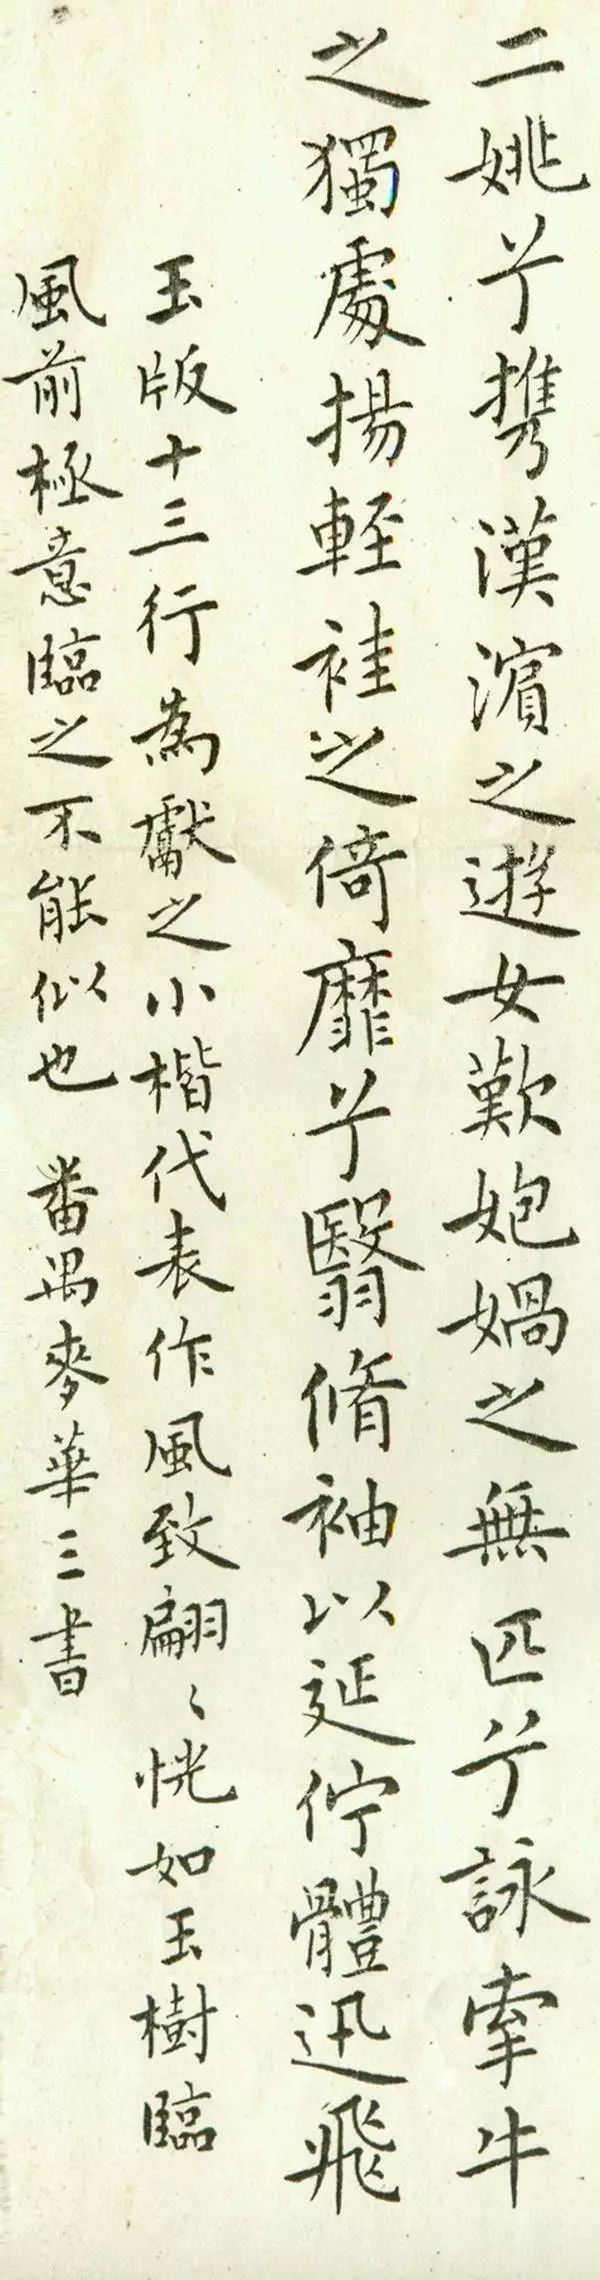 二姚兮攜漢濱之遊女歎匏媧之無匹兮詠牽牛
之獨處揚輕袿之倚靡兮翳脩袖以延佇體迅飛
玉版十三行為獻之小楷代表作風致翩々恍如玉樹臨
風前極意臨之不能似也 番禺麥華三書